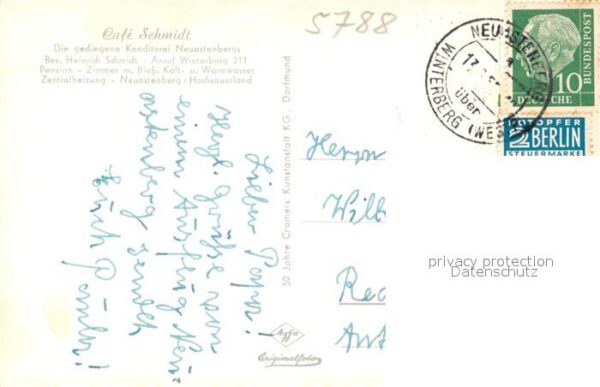 Café Schmidt
Die gediegene Konditorei Neuastenbergs
Bes. Heinrich Schmidt - Anruf Winterberg 211
Pension - Zimmer m. fließ. Kalt- u. Warmwasser
Zentralheizung - Neuastenberg / Hochsauerland
5788
NEUASTENBERG
über
WINTERBERG (WES
DEUTSCHE BUNDESPOST
10
NOTOPFER
2 BERLIN
STEUERMARKE
Lieber Papa!
Herzl. Grüße von
einem Ausflug Neu-
astenberg sendet
Euch
50 Jahre Cramers Kunstanstalt KG - Dortmund
Herrn
Wilh
Rec
Amt
Agfa
Originalfoto
privacy protection
Datenschutz